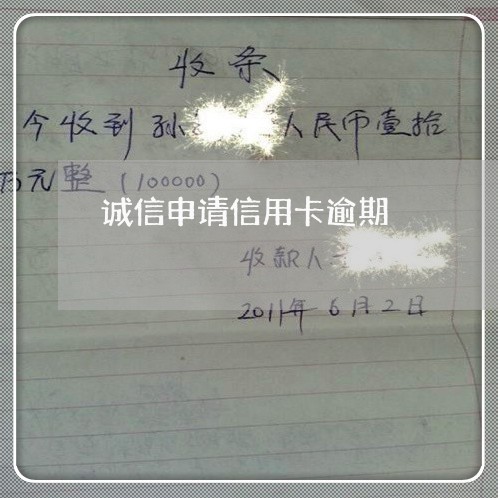 收条
今收到孙 人民币壹拾
万元整(100000)
诚信申请信用卡逾期
收款人
2011年6月2日